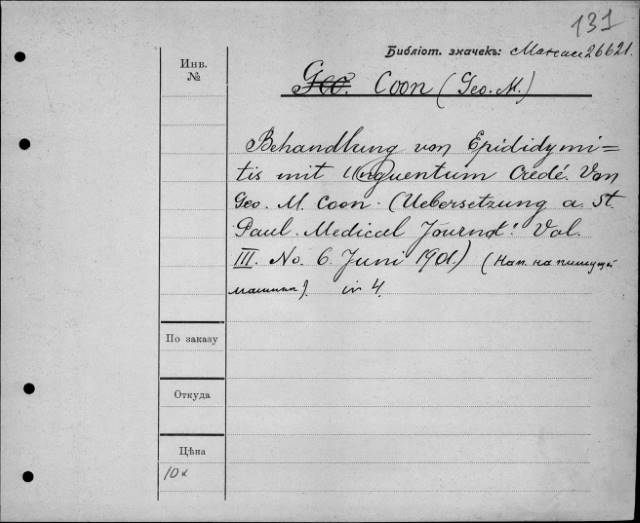 131
Библіот. значекъ: Магаси 26621.
Инв.
№
Geo. Coon (Geo. M.)
Behandlung von Epididymi=
tis mit Unguentum Credé. Von
Geo. M. Coon. (Uebersetzung a. St.
Paul. Medical Journal: Vol.
III. No. 6. Juni 1901) (Нап. на пишущ.
машинѣ). in 4.
По заказу
Откуда
Цѣна
10к